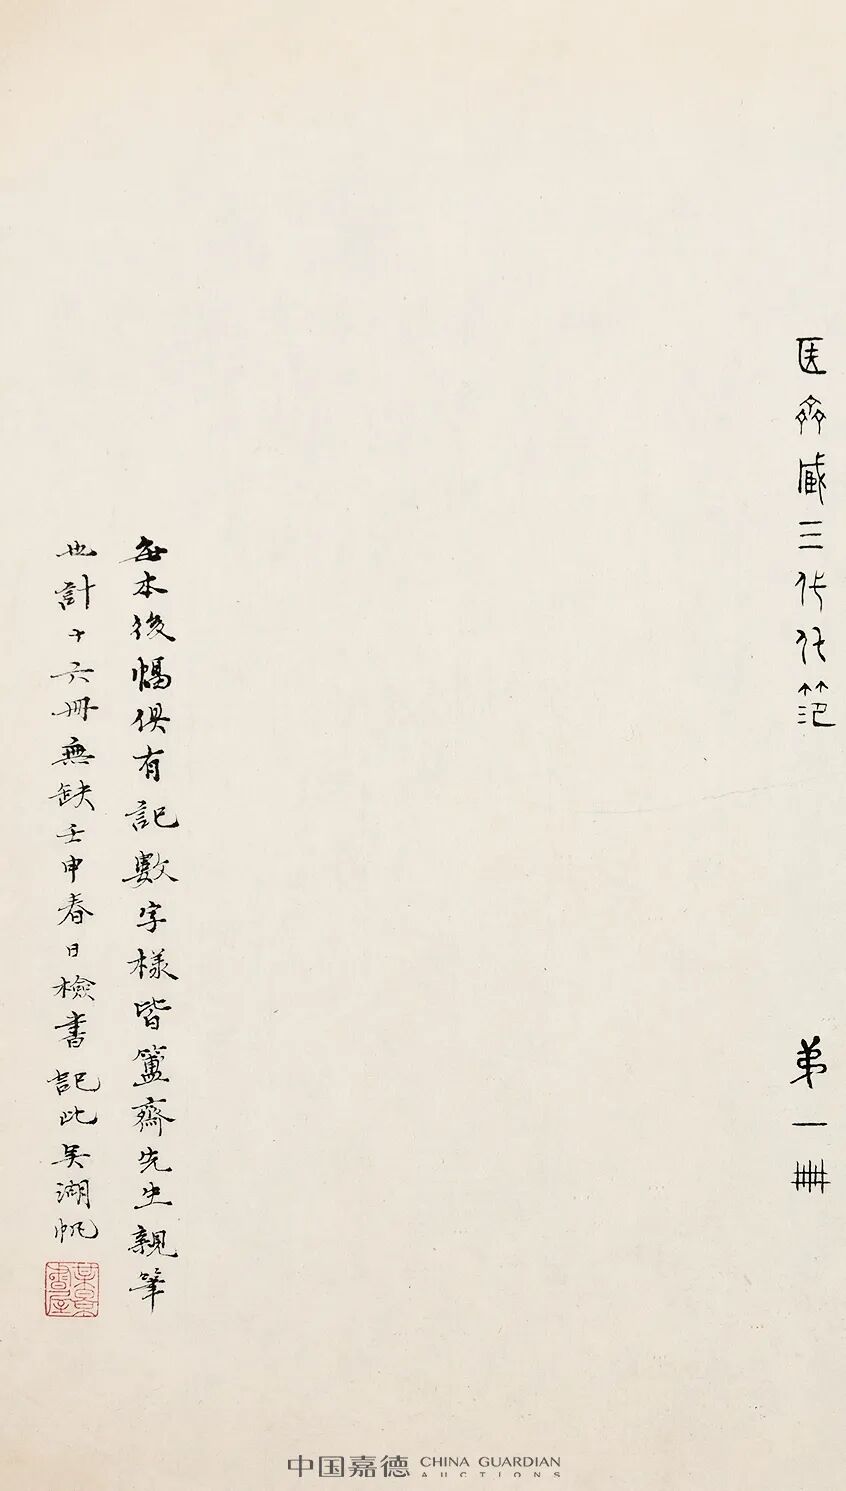 齊藏三代化笵
弟一冊
每本後幅俱有記數字樣皆簠齋先生親筆
也計十六冊無缺壬申春日檢書記此吳湖帆
某景書屋
中国嘉德 CHINA GUARDIAN
AUCTIONS